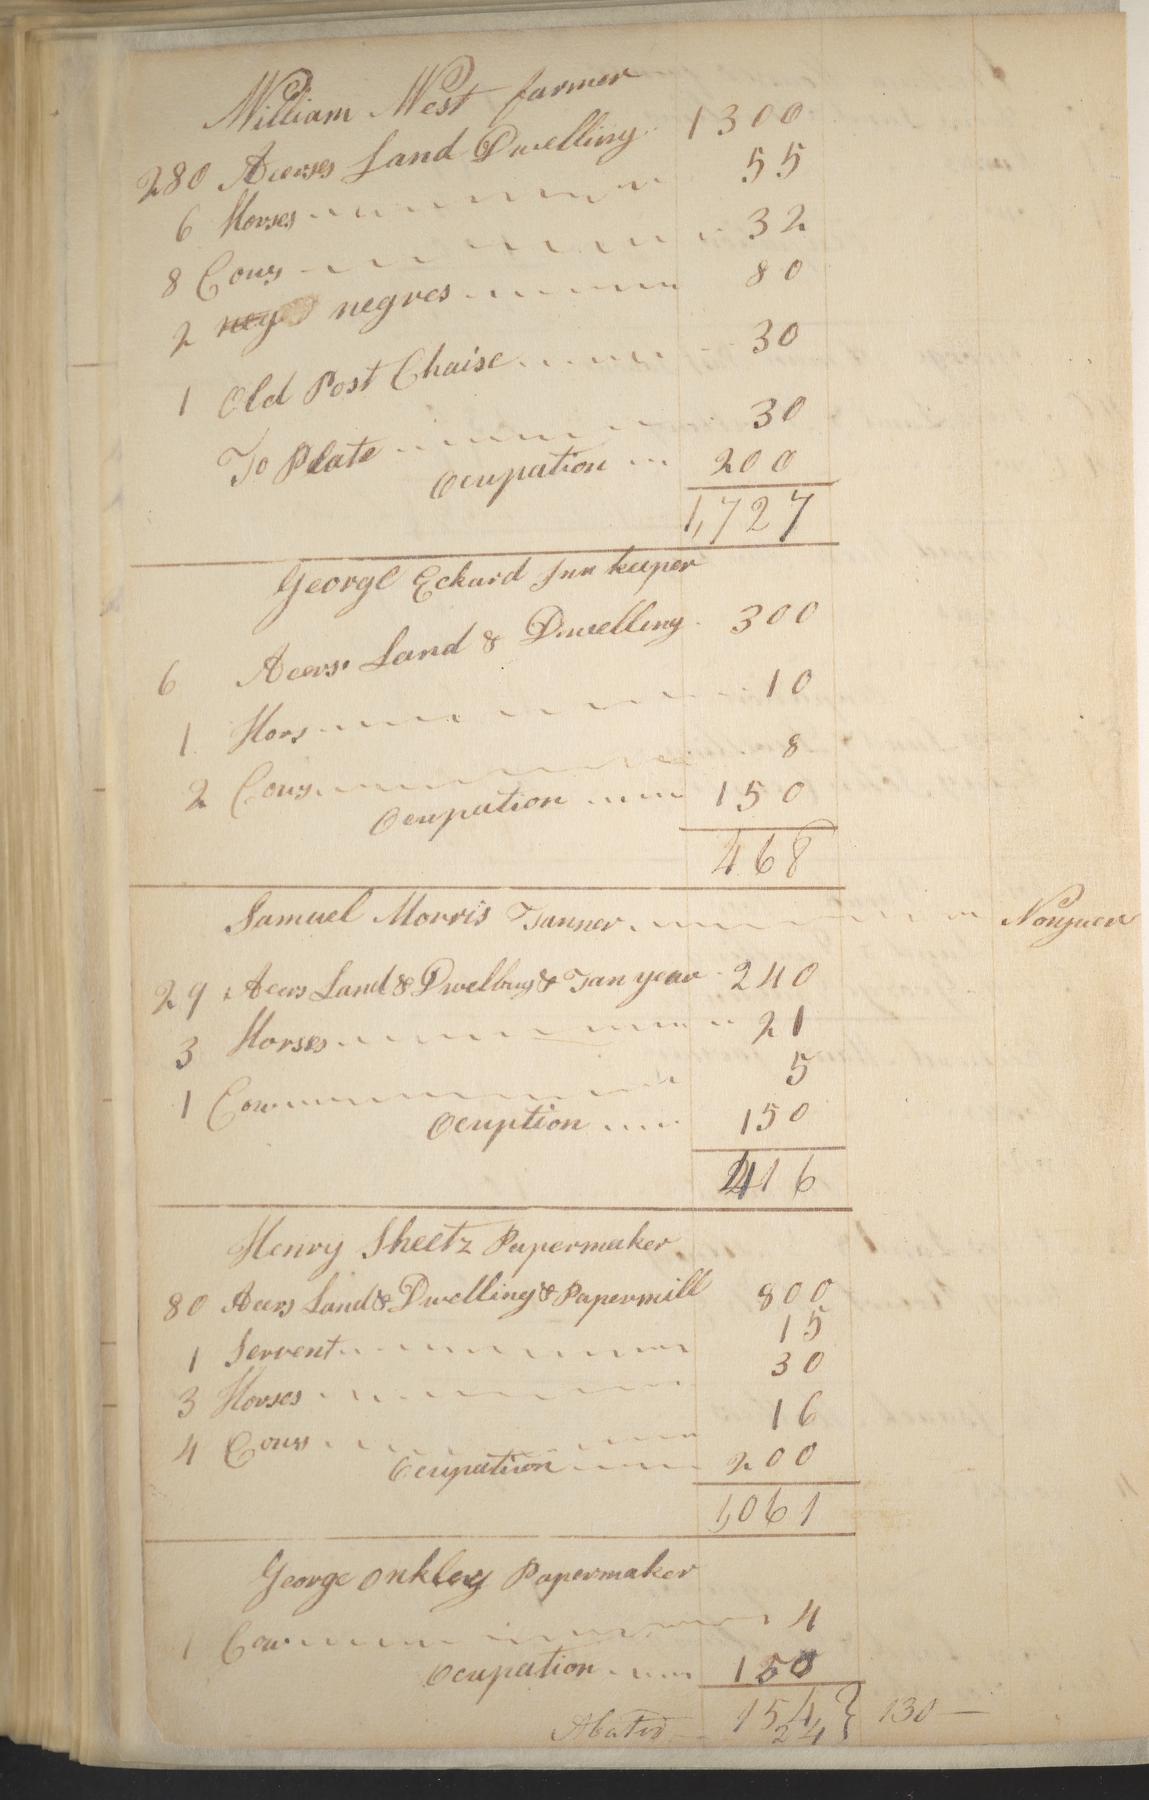 William West farmer
280 Acerses Land Dwelling 1300
6 Horses 55
8 Cows 32
2 neg negres 80
1 Old Post Chaise 30
To Plate 30
Ocupation 200
1,727
George Eckard Inn keeper
6 Acers Land & Dwelling 300
1 Hors 10
2 Cows 8
Ocupation 150
468
Samuel Morris Tanner
29 Acers Land & Dwelling & Tan year 240
3 Horses 21
1 Cow 5
Ocuption 150
416
Henry Sheetz Papermaker
80 Acers Land & Dwelling & Papermill 800
1 Servent 15
3 Horses 30
4 Cows 16
Ocupation 200
1,061
George Onkley Papermaker
1 Cow 4
Ocupation 150
154 } 130
Abated 24